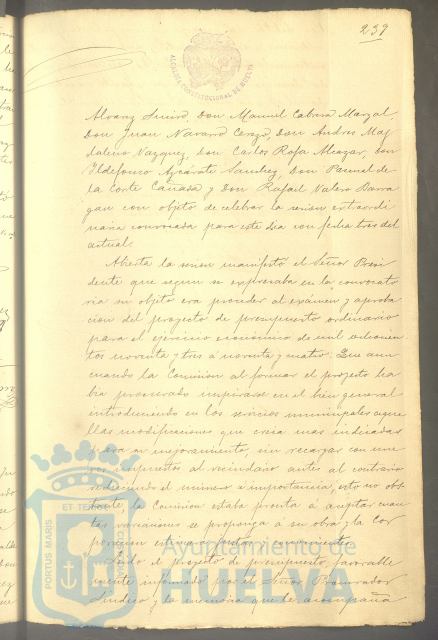 239
ALCALDIA CONSTITUCIONAL DE HUELVA
Alvarez Don Manuel Cabrera Marzal,
Don Juan Navarro Don Andres Mag
daleno Vazquez, Don Carlos Rofa Alcazar Don
Ildefonso Azcárate Sanchez, Don Pascual de
la Corte Cañada y Don Rafael Valero Barra
gan con objeto de celebrar la sesion estraordi
naria convocada para este dia con fecha tres del
actual.
Abierta la sesion manifestó el Señor Presi
dente que segun se expresaba en la convocato
ria su objeto era proceder al exámen y aproba
cion del proyecto de presupuesto ordinario
para el ejercicio economico de mil ochocien
tos noventa y tres á noventa y cuatro. Que aun
cuando la Comision al formar el proyecto ha
bia procurado inspirarse en el bien general
introduciendo en los servicios municipales aque
llas modificaciones que creia mas indicadas
para su mejoramiento, sin recargar con nue
vos impuestos al vecindario antes al contrario
reduciendo el numero é importancia, esto no obs
tante, la Comision estaba pronta á aceptar cuan
tas variaciones se proponga á su obra y la Cor
poracion estime justas y convenientes.
el proyecto de presupuesto, favorable
mente informado por el Señor Procurador
Sindico y la memoria que le acompaña
PORTUS MARIS
ET TERRAE
CUSTODIA
Ayuntamiento de
HUELVA